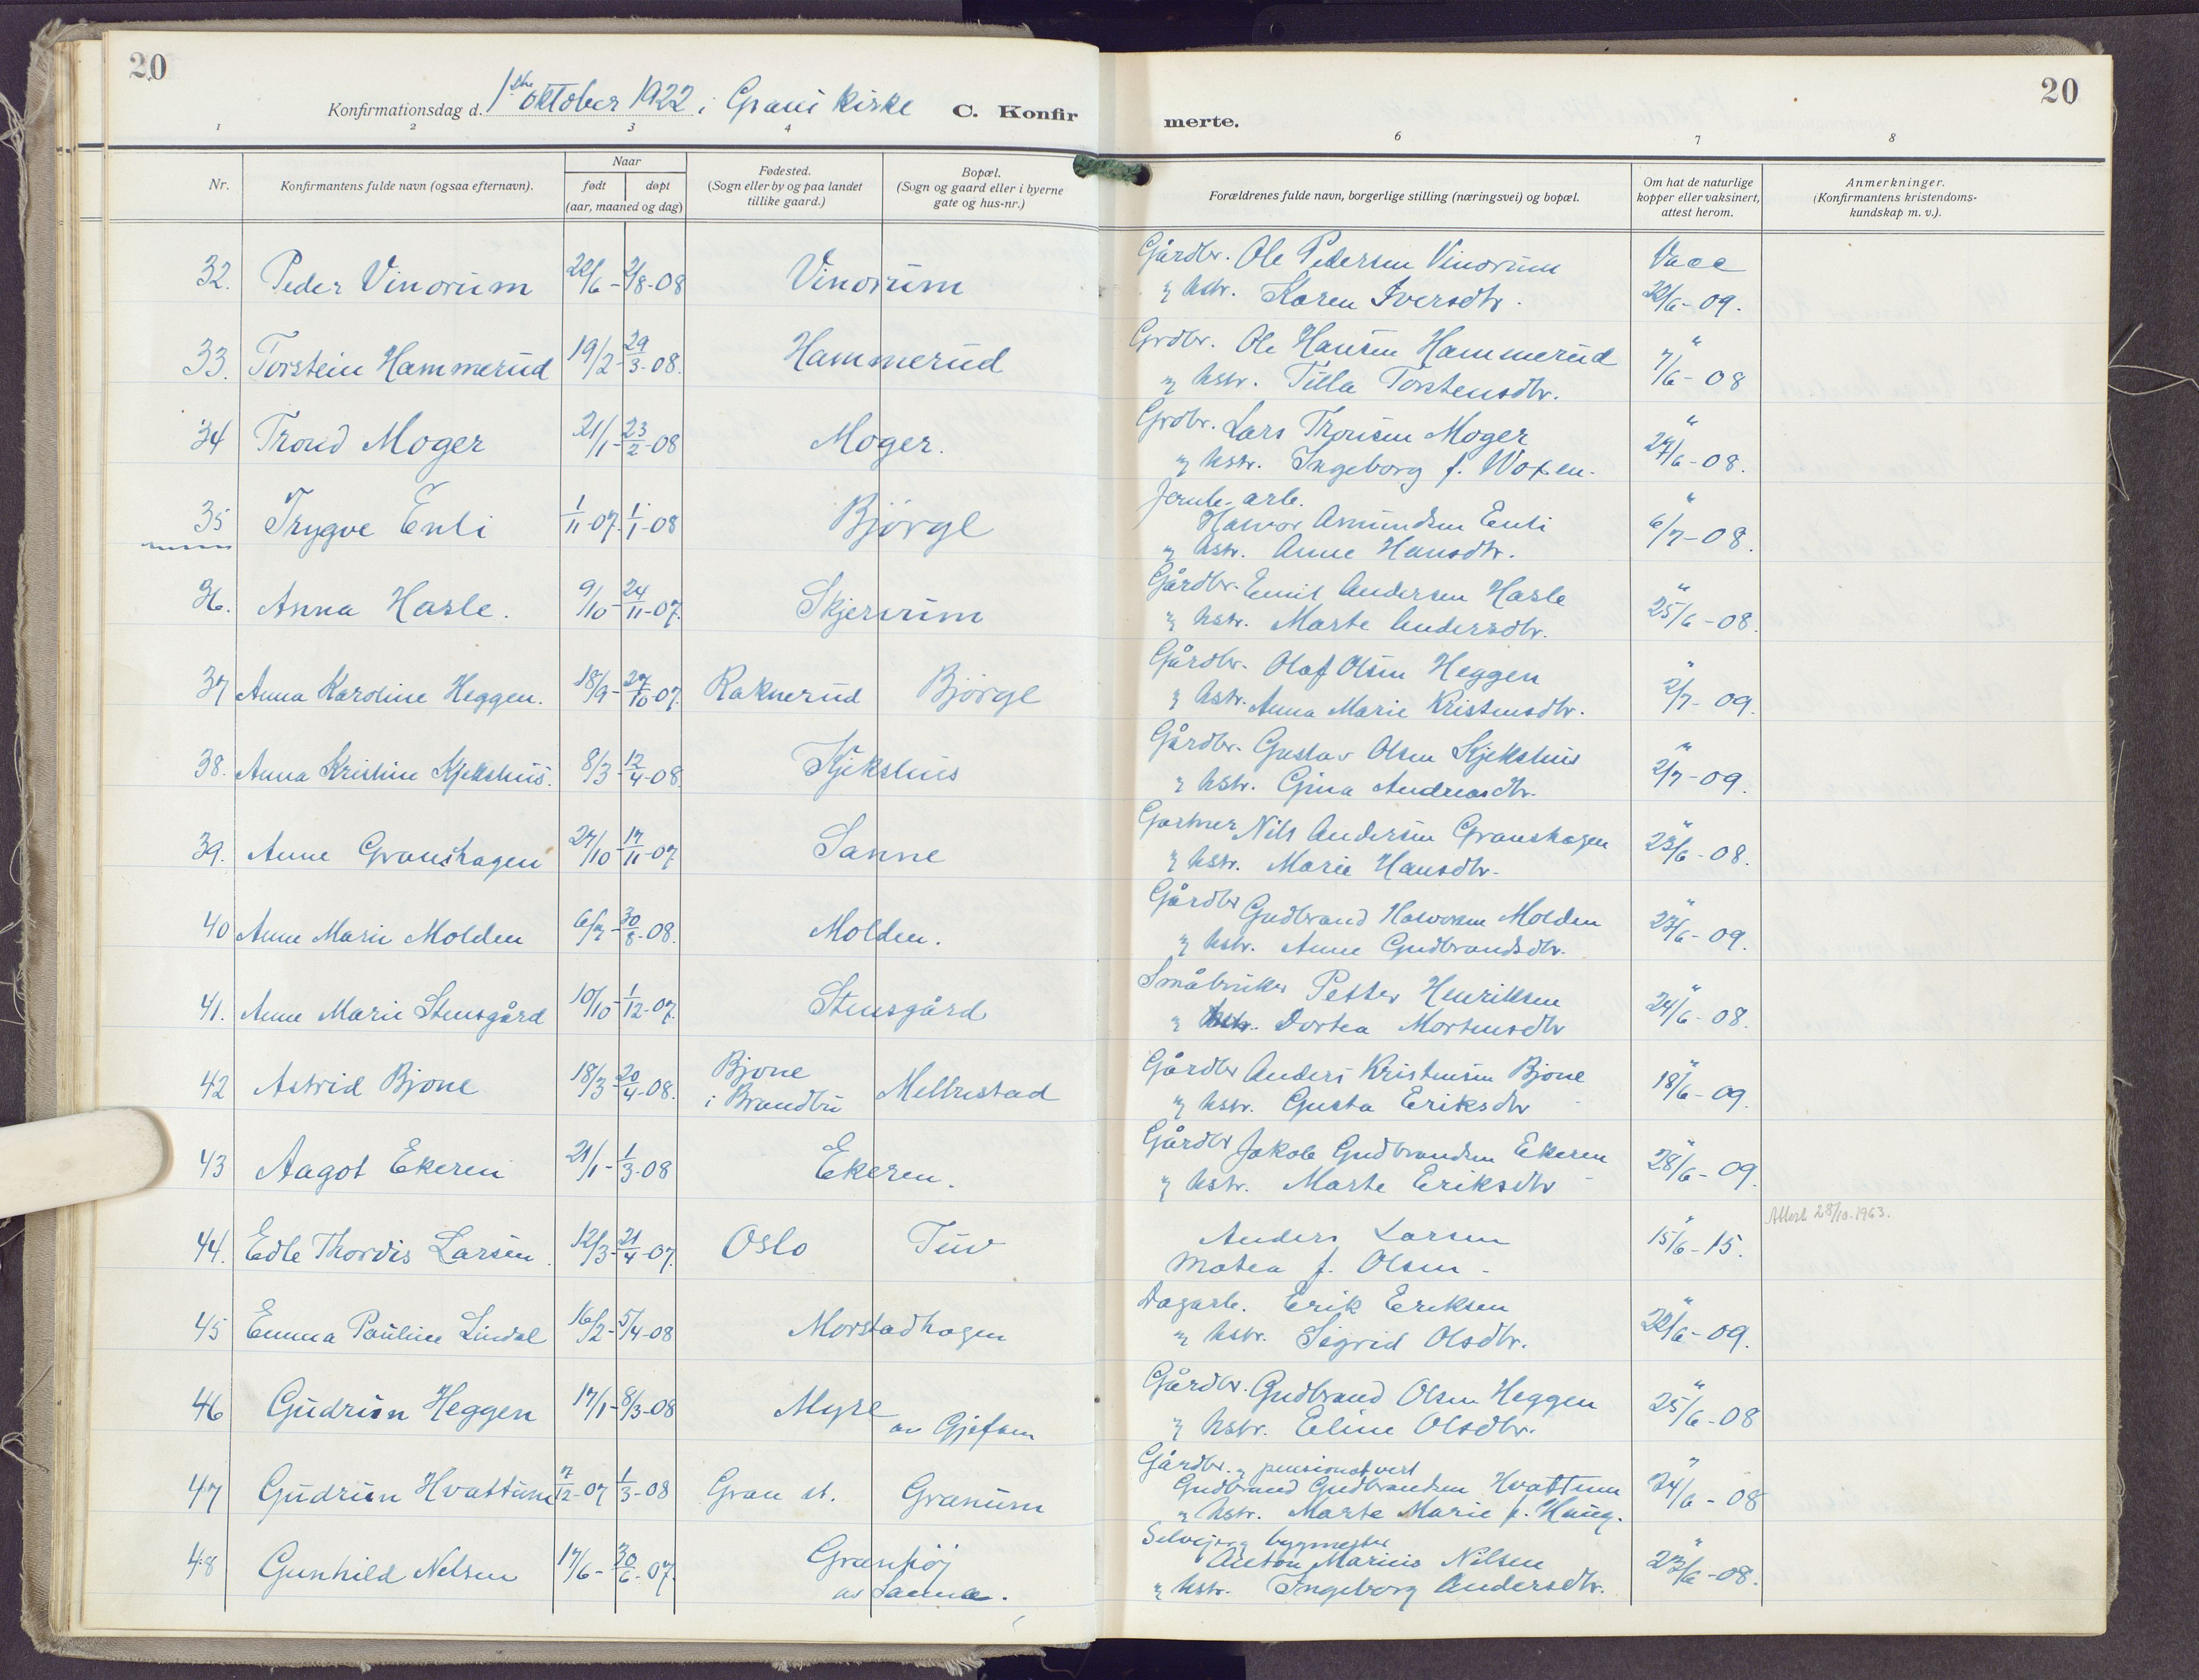 20
Konfirmationsdag d. 1ste oktober 1922 i Gran kirke C. Konfirmerte. 20
1 2 3 4 6 7 8
Nr. Konfirmantens fulde navn (ogsaa efternavn). Naar født døpt (aar, maaned og dag) Fødested. (Sogn eller by og paa landet tillike gaard.) Bopæl. (Sogn og gaard eller i byerne gate og hus-nr.) Forældrenes fulde navn, borgerlige stilling (næringsvei) og bopæl. Om hat de naturlige kopper eller vaksinert, attest herom. Anmerkninger. (Konfirmantens kristendomskundskap m. v.).
32. Peder Vinorum 22/6 - 2/8-08 Vinorum Gårdbr. Ole Pedersen Vinorum Vacc
& hstr. Karen Iversdtr. 22/6-09.
33. Torstein Hammerud 19/2 - 29/3-08. Hammerud Grdbr. Ole Hansen Hammerud "
& hstr. Tilla Torstensdtr. 7/6-08
34 Trond Moger 21/1 - 23/2-08 Moger. Grdbr. Lars Thronsen Moger "
& hstr. Ingeborg f. Woxen. 27/6-08.
35 Trygve Enli 1/11-07. 1/1-08 Bjørge Jernb-arb.
Halvor Amundsen Enli "
& hstr. Anne Hansdtr. 6/7-08.
36. Anna Hasle. 9/10 - 24/11-07. Skjervum Gårdbr. Emil Andersen Hasle "
& hstr. Marte Andersdtr. 25/6-08.
37 Anna Karoline Heggen. 18/9 - 27/10-07. Raknerud Bjørge Gårdbr. Olaf Olsen Heggen "
& hstr. Anna Marie Kristensdtr. 2/7-09.
38. Anna Kristine Kjekshus. 8/3 - 12/4-08. Kjekshus Gårdbr. Gustav Olsen Kjekshus "
& hstr. Gina Andreasdtr. 2/7-09.
39. Anne Granshagen 27/10 - 17/11-07 Sanne Gartner Nils Andersen Granshagen "
& hstr. Marie Hansdtr. 23/6-08.
40 Anne Marie Molden 6/7 - 30/8-08. Molden. Gårdbr Gudbrand Halvorsen Molden "
& hstr. Anne Gudbrandsdtr. 23/6-09.
41. Anne Marie Stensgård 10/10 - 1/12-07. Stensgård Småbruker Petter Henriksen "
& hstr. Dortea Mortensdtr 24/6-08.
42 Astrid Bjone 18/3 - 20/4-08. Bjone i Brandbu Mellrestad Gårdbr Anders Kristensen Bjone "
& hstr. Gusta Eriksdtr 18/6-09.
43 Aagot Ekeren 21/1 - 1/3-08 Ekeren. Gårdbr Jakob Gudbrandsen Ekeren "
& hstr. Marte Eriksdtr 28/6-09.
44. Edle Thordis Larsen. 12/3 - 21/4-07. Oslo Tuv Anders Larsen " Attest 28/10.1963.
Matea f. Olsen. 15/6-15.
45 Emma Pauline Lindal 16/2 - 5/4-08 Morstadhagen Dagarb. Erik Eriksen "
& hstr. Sigrid Olsdtr. 22/6-09.
46 Gudrun Heggen 17/1 - 8/3-08 Myre av Gjefsen Gårdbr. Gudbrand Olsen Heggen "
& hstr. Eline Olsdtr. 25/6-08
47 Gudrun Hvattum 7/12-07 1/3-08 Gran st. Granum Gårdbr. & pensionatvert
Gudbrand Gudbrandsen Hvattum "
& hstr. Marte Marie f. Haug. 24/6-08
48 Gunhild Nelsen 17/6 - 30/6-07. Granhøj av Sanne. Selvejerg byggmester
Anton Marius Nilsen "
& hstr. Ingeborg Andersdtr. 23/6-08.